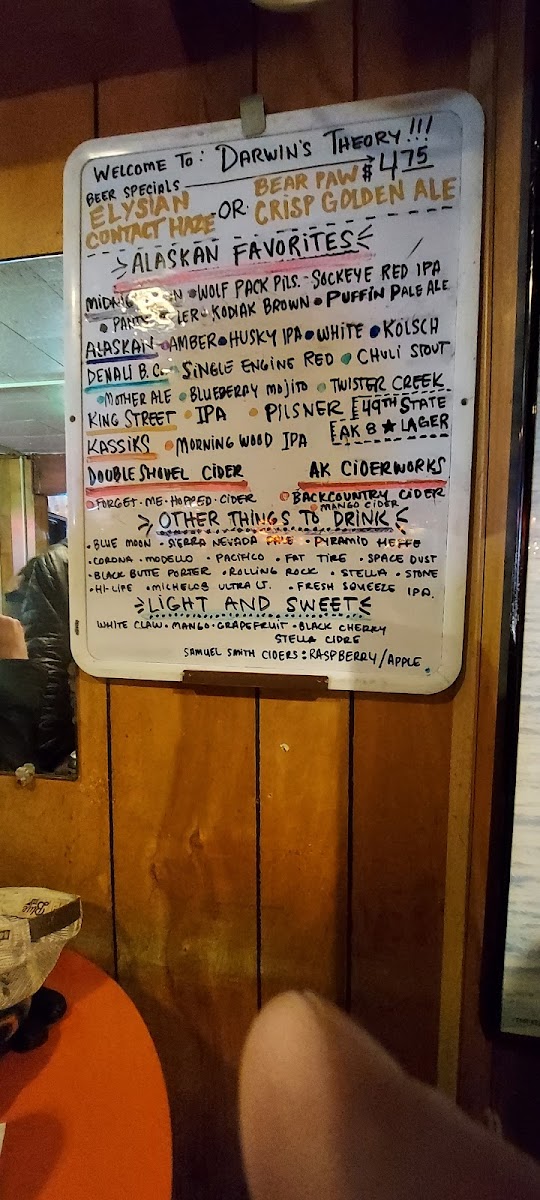 WELCOME TO: DARWIN'S THEORY!!!
BEER SPECIALS $4.75
ELYSIAN CONTACT HAZE -OR- BEAR PAW CRISP GOLDEN ALE
ALASKAN FAVORITES
WOLF PACK PILS. - SOCKEYE RED IPA
KODIAK BROWN • PUFFIN PALE ALE
ALASKAN • AMBER • HUSKY IPA • WHITE • KÖLSCH
DENALI B.C. • SINGLE ENGINE RED • CHULI STOUT
• MOTHER ALE • BLUEBERRY MOJITO • TWISTER CREEK
KING STREET • IPA • PILSNER [49TH STATE
KASSIKS • MORNING WOOD IPA [AK 8 ★ LAGER
DOUBLE SHOVEL CIDER AK CIDERWORKS
• FORGET-ME-HOPPED-CIDER • BACKCOUNTRY CIDER
• MANGO CIDER
OTHER THINGS TO DRINK
• BLUE MOON • SIERRA NEVADA PALE • PYRAMID HEFFE
• CORONA • MODELLO • PACIFICO • FAT TIRE • SPACE DUST
• BLACK BUTTE PORTER • ROLLING ROCK • STELLA • STONE
• HI-LIFE • MICHELOB ULTRA LT. • FRESH SQUEEZE IPA.
LIGHT AND SWEET
WHITE CLAW • MANGO • GRAPEFRUIT • BLACK CHERRY
STELLA CIDRE
SAMUEL SMITH CIDERS: RASPBERRY/APPLE